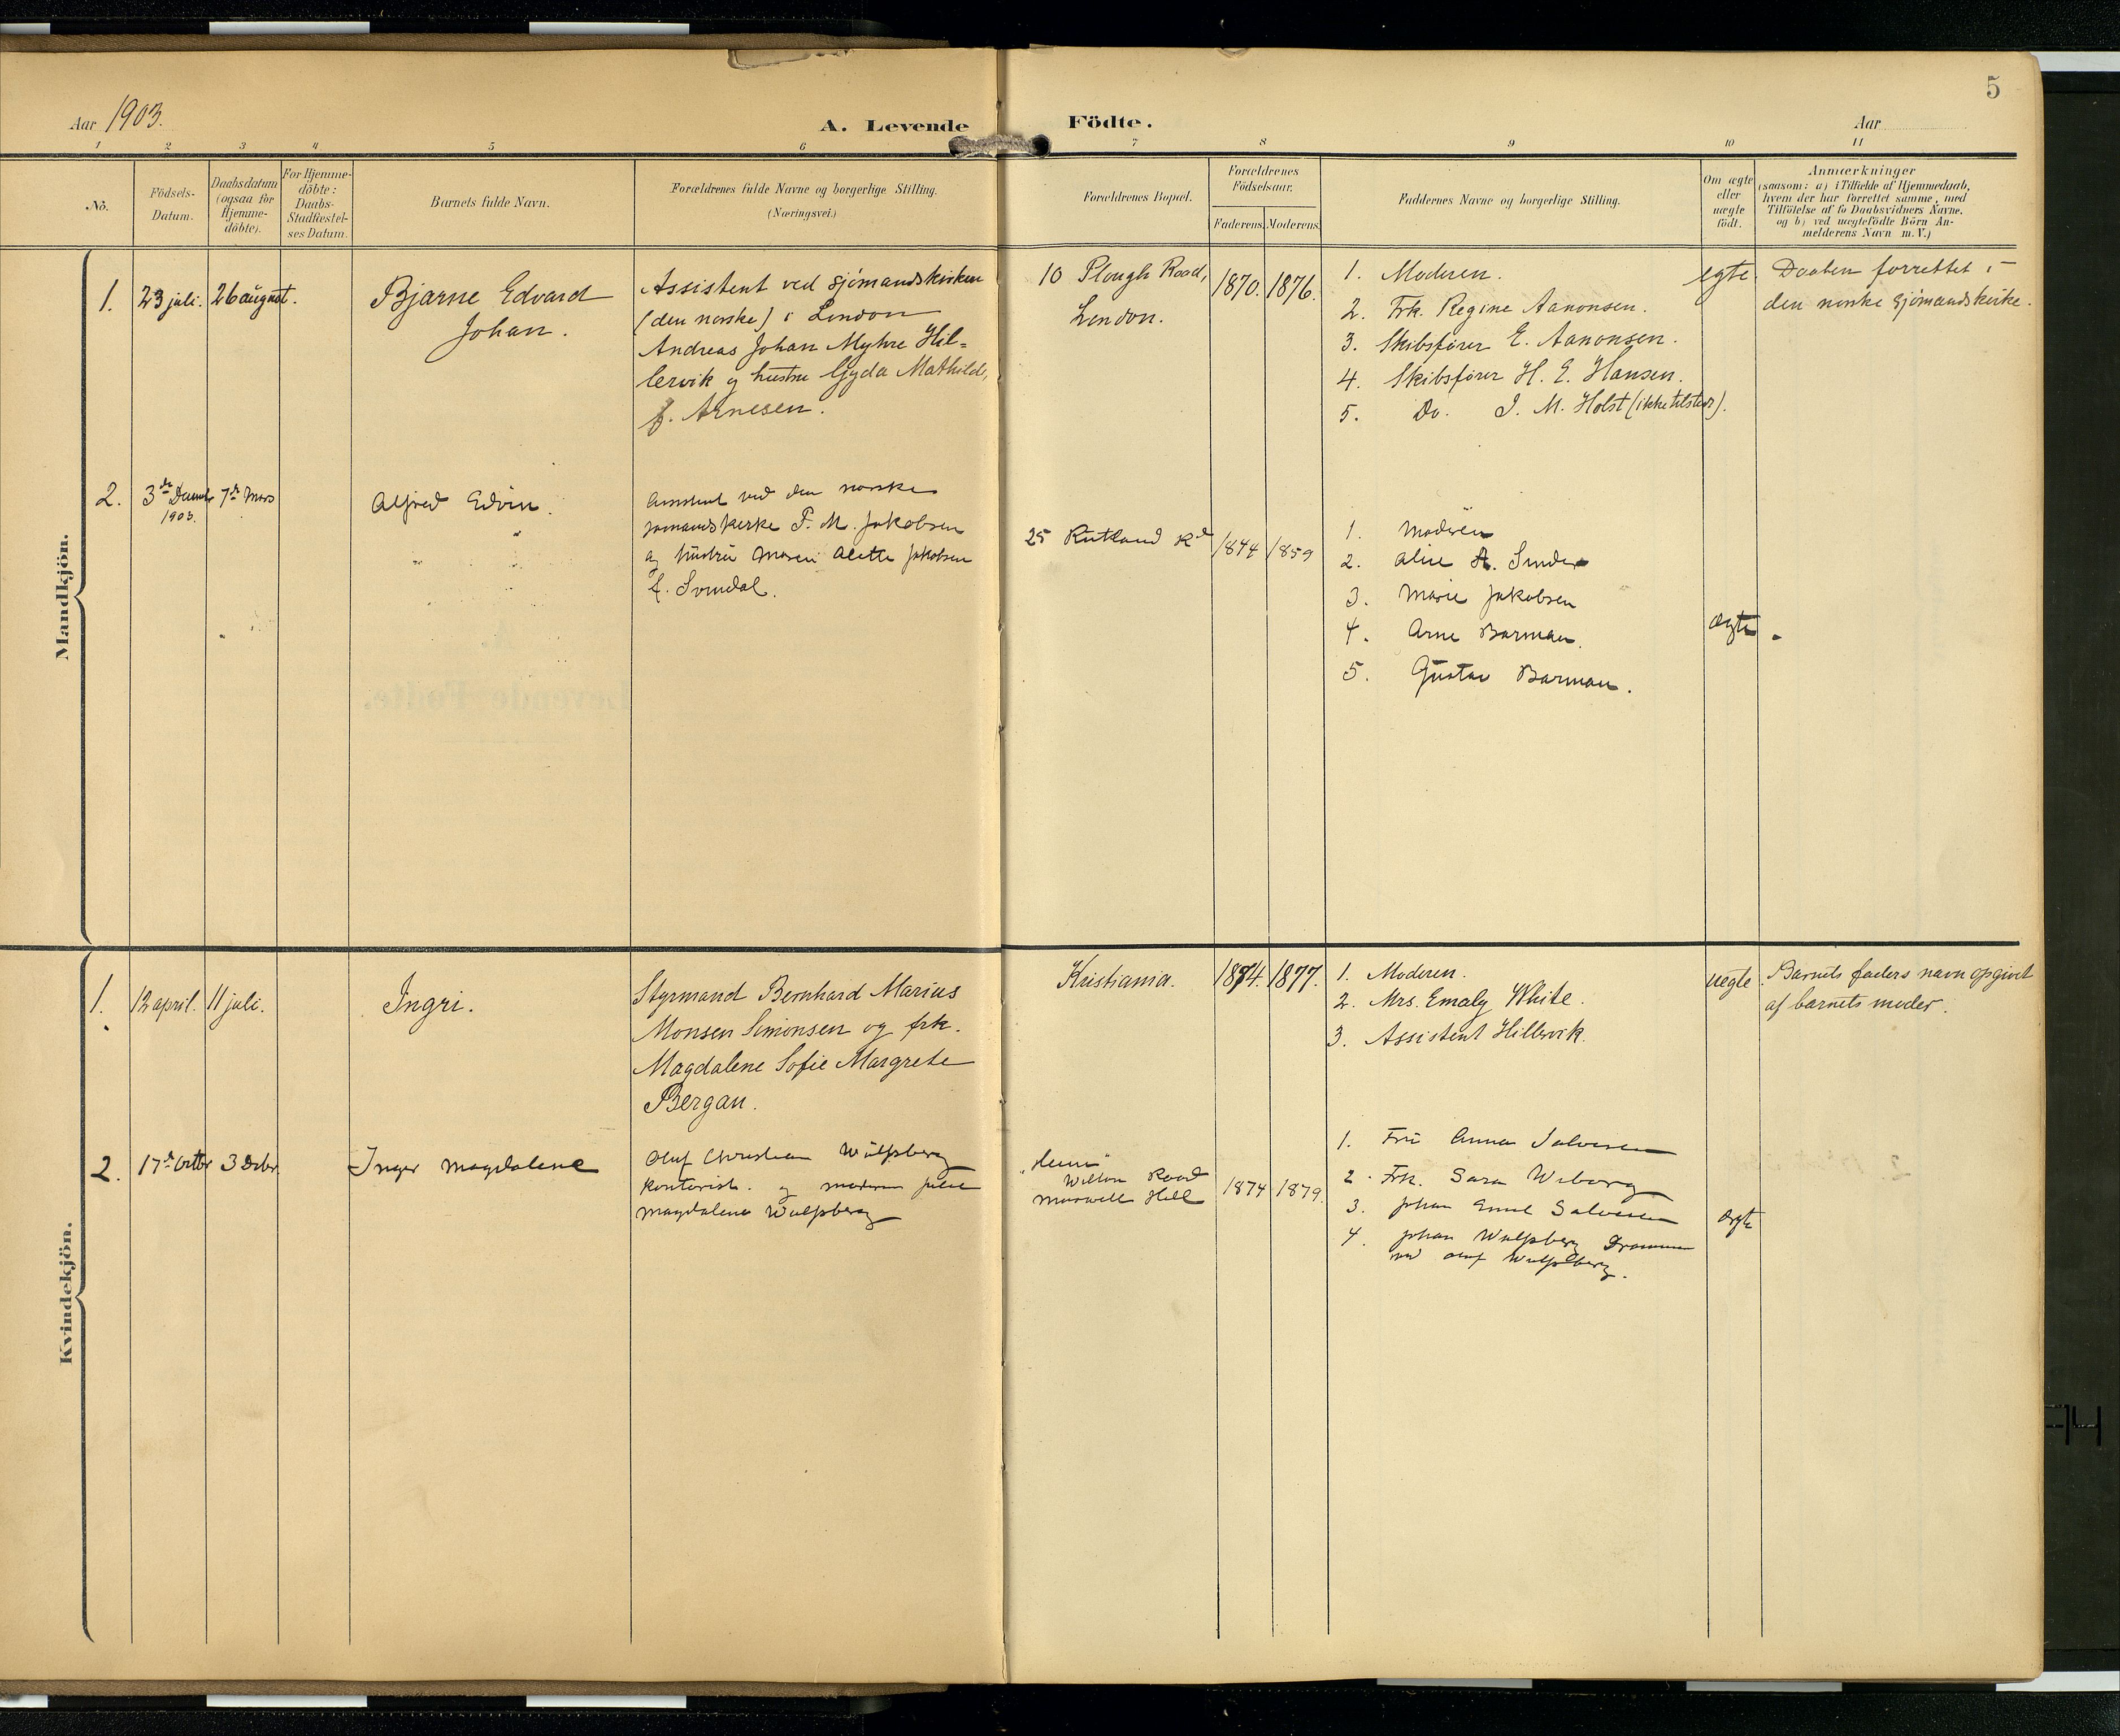 5
Aar 1903.
A. Levende Födte.
Aar
1 2 3 4 5 6 7 8 9 10 11
No.
Födsels-
Datum.
Daabsdatum
(ogsaa for
Hjemme-
döbte).
For Hjemme-
döbte:
Daabs-
Stadfæstel-
ses Datum.
Barnets fulde Navn.
Forældrenes fulde Navne og borgerlige Stilling.
(Næringsvei.)
Forældrenes Bopæl.
Forældrenes
Födselsaar.
Faderens.
Moderens.
Faddernes Navne og borgerlige Stilling.
Om ægte
eller
uægte
födt.
Anmærkninger
(saasom: a) i Tilfælde af Hjemmedaab,
hvem der har forrettet samme, med
Tilföielse af to Daabsvidners Navne.
og b) ved uægtefödte Börn An-
melderens Navn m. V.)
Mandkjön.
1.
23 juli.
26 august.
Bjarne Edvard
Johan.
Assistent ved sjömandskirken
(den norske) i London
Andreas Johan Myhre Hil-
lervik og hustru Gyda Mathilde,
f. Arnesen.
10 Plough Road,
London.
1870.
1876.
1. Moderen.
2. Frk. Regine Aanonsen.
3. Skibsfører E. Aanonsen.
4. Skibsfører H. E. Hansen.
5. Do. J. M. Holst (ikke tilstede).
egte.
Daaben forrettet i
den norske sjömandskirke.
2.
3de Decembr
1903.
7de Mars
Alfred Edvin.
Assistent ved den norske
sømandskirke F. M. Jakobsen
og hustru Maren Alette Jakobsen
f. Svendal.
25 Rutland Rd
1844
1859
1. Moderen
2. Alice A.
3. Marie Jakobsen
4. Arne Barman.
5. Gustav Barman.
ægte
Kvindekjön.
1.
12 april.
11 juli.
Ingri.
Styrmand Bernhard Marius
Monsen Simonsen og frk.
Magdalene Sofie Margrete
Bergan.
Kristiania.
1874.
1877.
1. Moderen.
2. Mrs. Emaly White.
3. Assistent Hillervik.
uegte.
Barnets faders navn opgivet
af barnets moder.
2.
17de Octbr
3 Decbr.
Inger Magdalene
Oluf Christian Wulfsberg
Kontorist. og moderen Julie
Magdalene Wulfsberg
Wilton Road
Muswell Hill
1874
1879.
1. Fru Anna Salvesen
2. Frk. Sara Wiborg
3. Johan Emil Salvesen
4. Johan Wulfsberg Drammen
ved Oluf Wulfsberg.
ægte